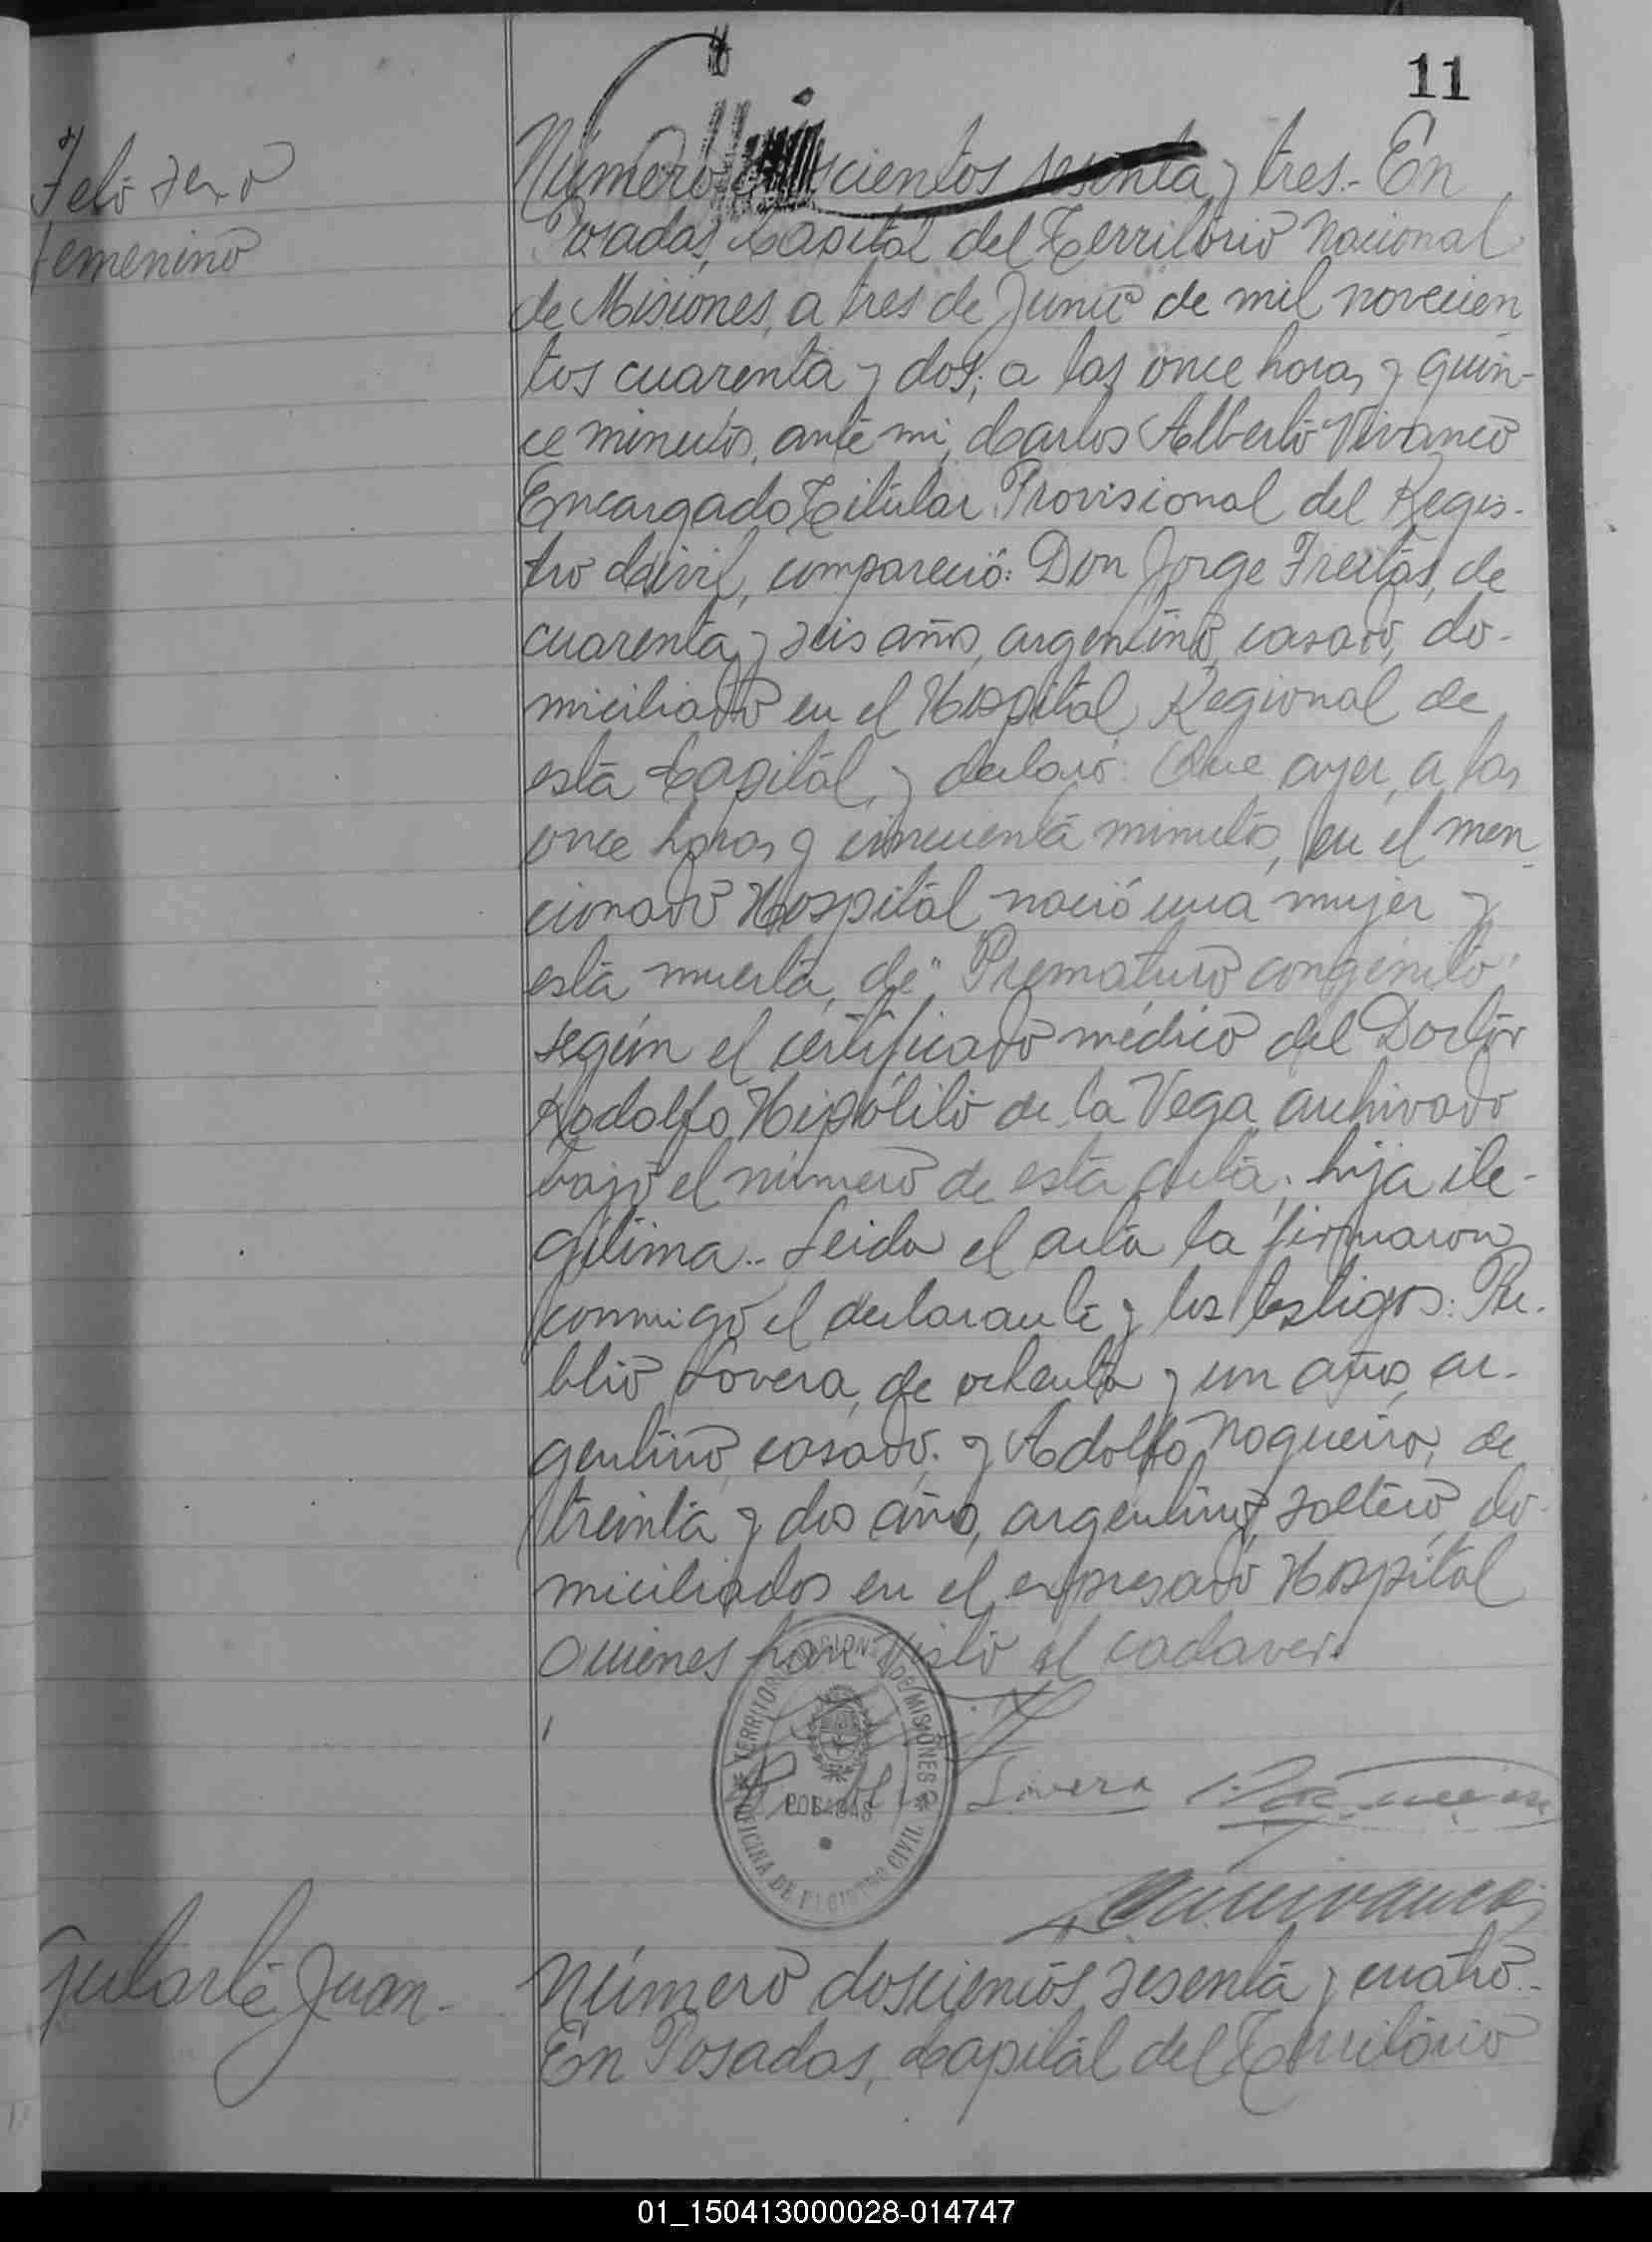 11
Feto sexo
femenino
Número doscientos sesenta y tres.- En
Posadas, Capital del Territorio Nacional
de Misiones, a tres de Junio de mil novecien-
tos cuarenta y dos; a las once horas y quin-
ce minutos, ante mi, Carlos Alberto Vivanco
Encargado Titular Provisional del Regis-
tro Civil, compareció: Don Jorge Freitas, de
cuarenta y seis años, argentino, casado, do-
miciliado en el Hospital Regional de
esta Capital, y declaró: Que ayer, a las
once horas y cincuenta minutos, en el men-
cionado Hospital nació una mujer y
esta muerta, de "Prematuro congénito"
según el certificado médico del Doctor
Rodolfo Hipólito de la Vega archivado
bajo el número de esta acta; hija ile-
gitima.. Leida el acta la firmaron
conmigo el declarante y los testigos: Pu-
blio Lovera, de ochenta y un años, ar-
gentino, casado; y Adolfo Nogueira, de
treinta y dos años, argentino, soltero, do-
miciliados en el expresado Hospital
quienes han visto el cadaver.
TERRITORIO NACIONAL DE MISIONES
POSADAS
OFICINA DE REGISTRO CIVIL
Lovera
Gularte Juan.-
Número doscientos sesenta y cuatro.-
En Posadas, Capital del Territorio
01_150413000028-014747